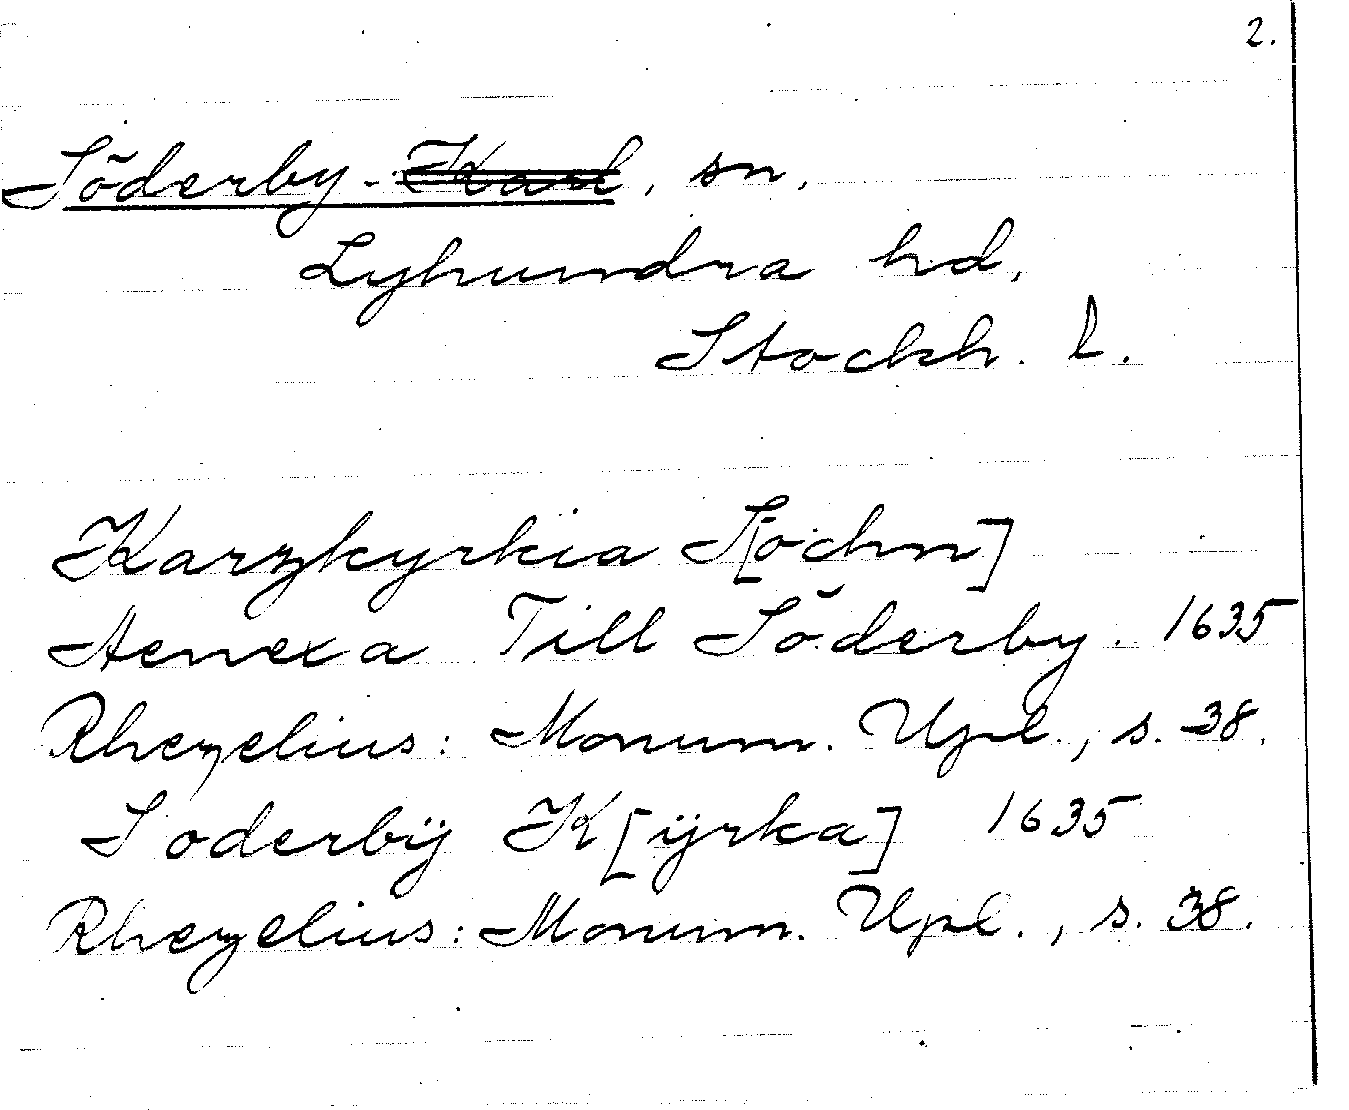 2.
Söderby-Karl, sn,
Lyhundra hd,
Stockh. l.
Karzkyrkia S[ochn]
Aenexa Till Söderby. 1635
Rhezelius: Monum. Upl., s. 38.
Soderbÿ K[ÿrka] 1635
Rhezelius: Monum. Upl., s. 38.